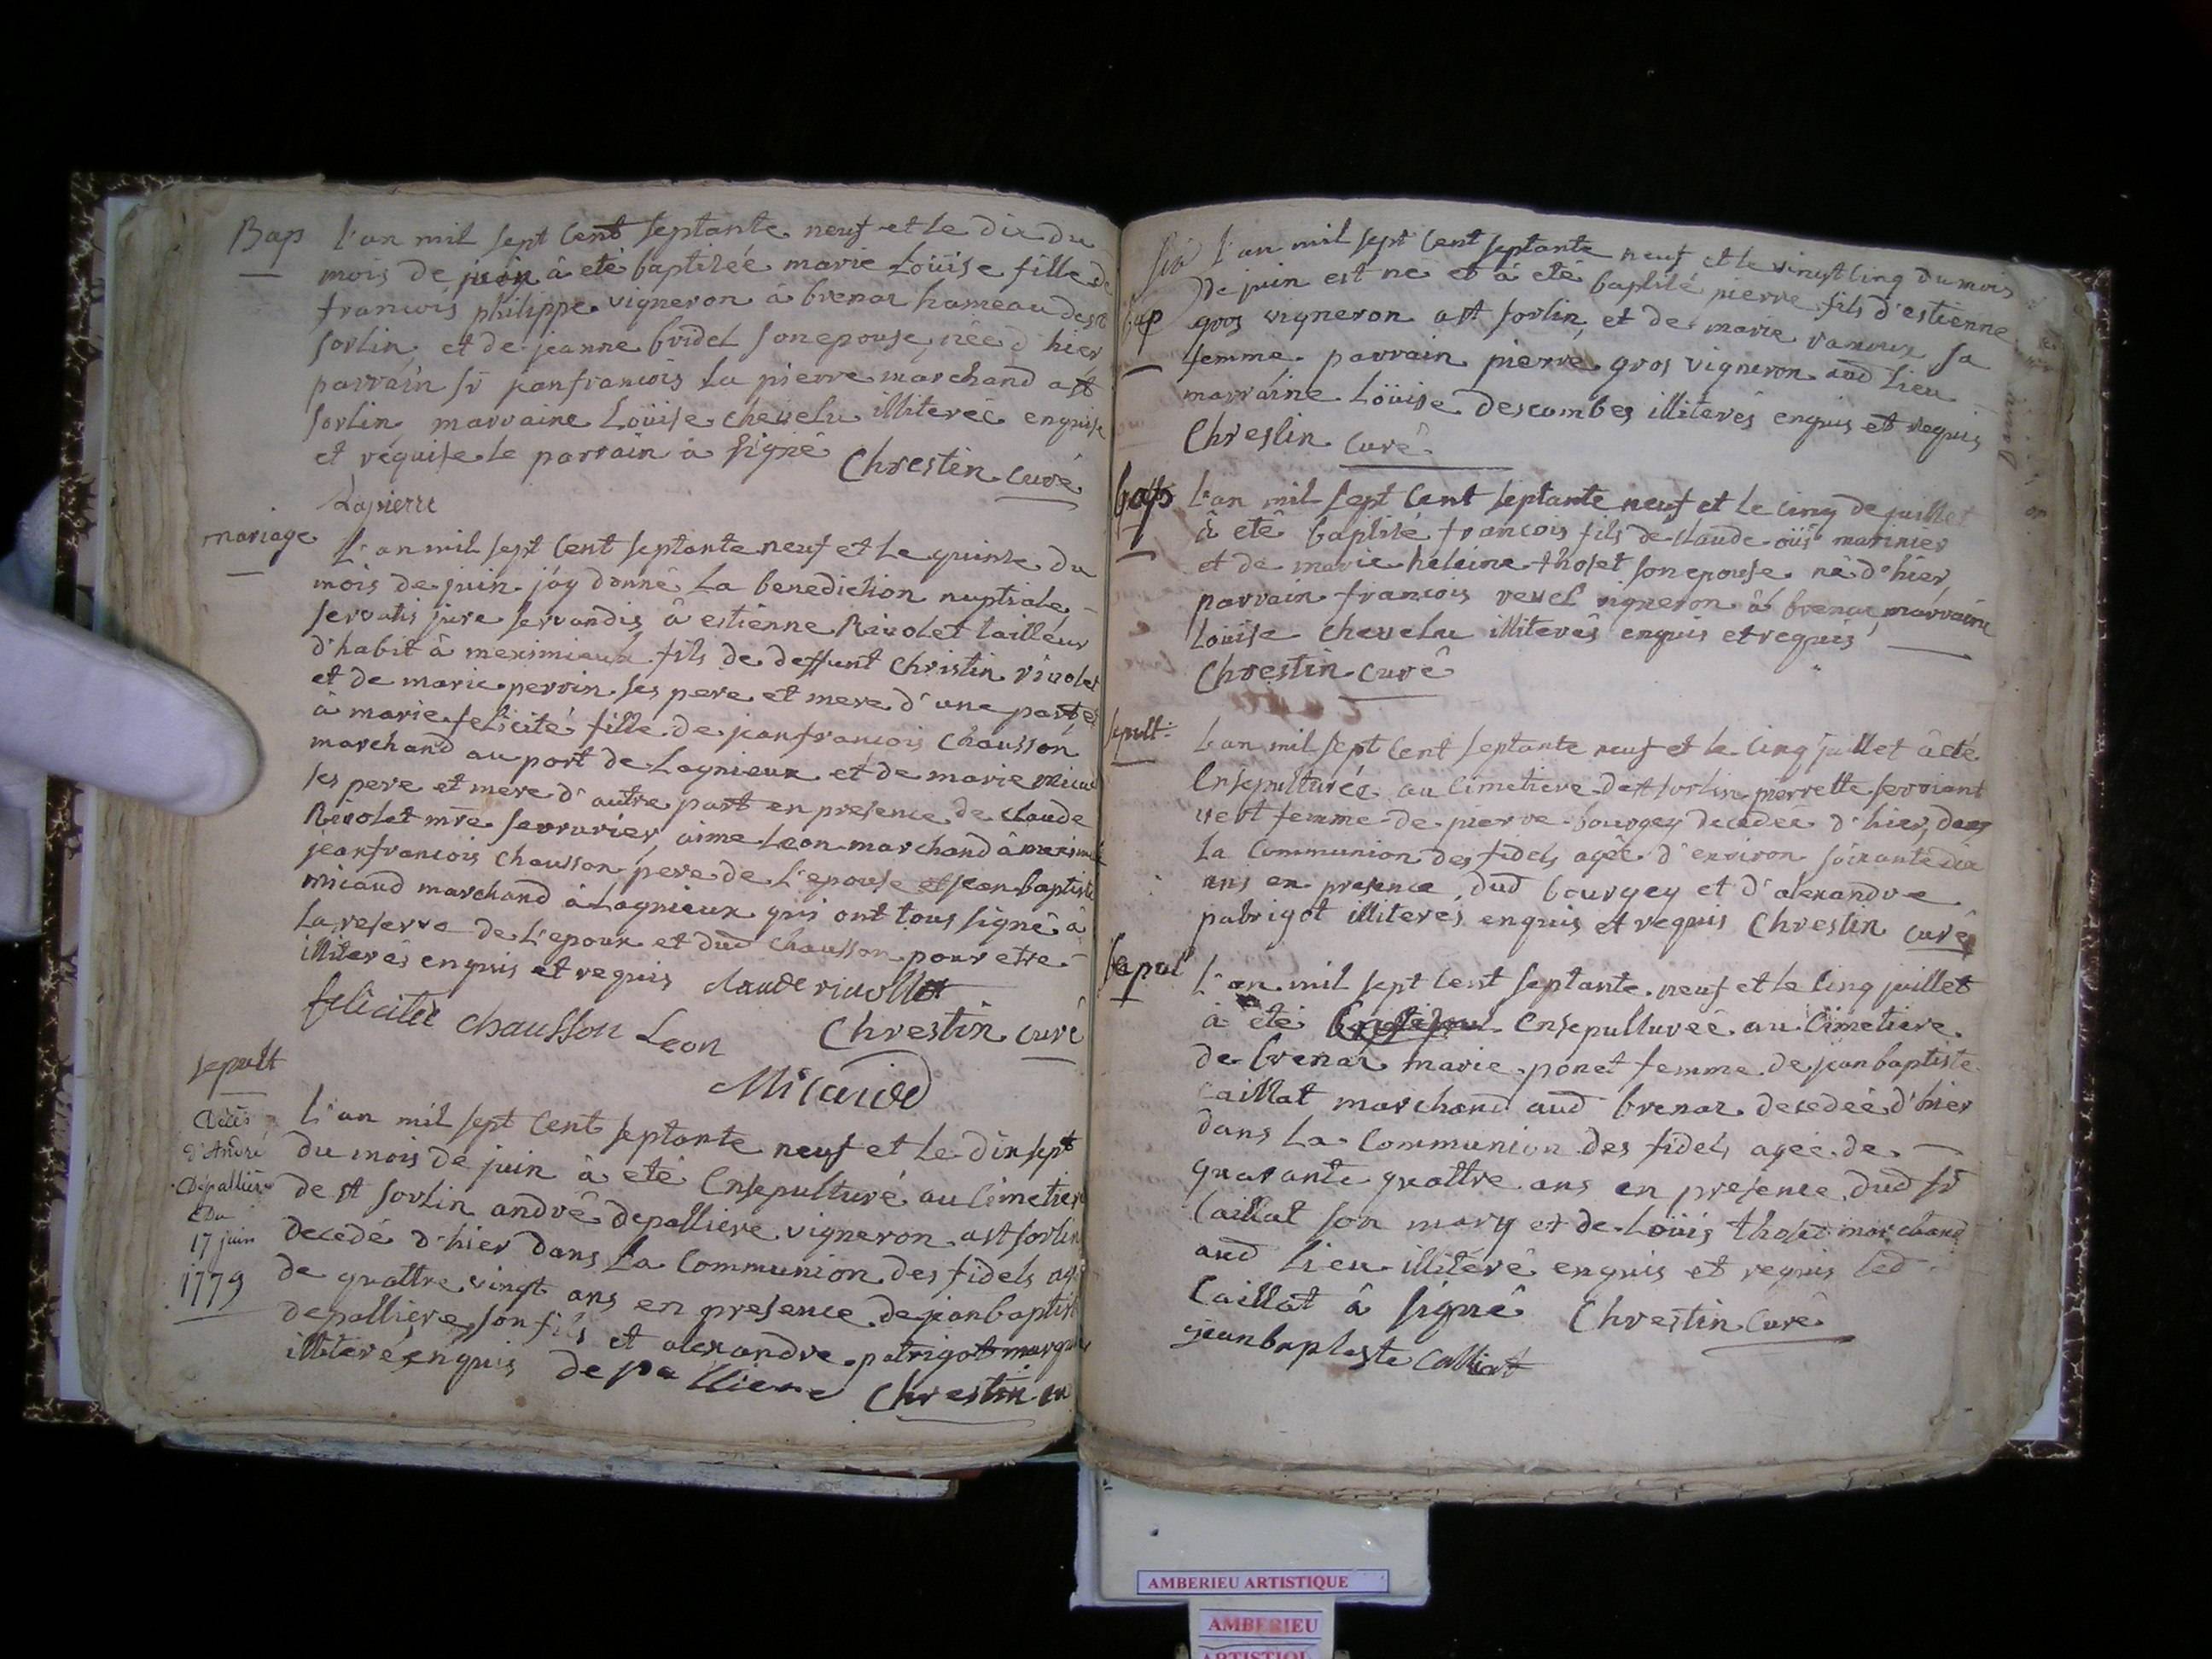 Bap
L'an mil sept cent septante neuf et le dix du
mois de juin à eté baptisée marie Loüise fille de
francois philippe vigneron à brenaz hameau de st
sorlin et de jeanne bridel son epouse, née d'hier
parrain sr jeanfrancois La pierre marchand a st
sorlin marraine Loüise chevelu illiterée enquise
et requise le parrain à signé Chrestin curé
Lapierre
mariage
L'an mil sept cent septante neuf et le quinze du
mois de juin j'ay donné La benediction nuptiale
servatis jure servandis à estienne Rivolet tailleur
d'habit à meximieux fils de deffunt Christin rivolet
et de marie perrin ses pere et mere d'une part et
à marie felicité fille de jeanfrancois Chausson
marchand au port de Lagnieux et de marie
ses pere et mere d'autre part en presence de claude
Rivolet mre serrurier, aime Leon marchand à
jeanfrancois Chausson pere de L'epouse et jean baptiste
micaud marchand à Lagnieux qui ont tous signé à
La reserve de L'epoux et dud Chausson pour etre
illiterés enquis et requis claude rivollet
felicitée chausson Leon Chrestin curé
Micaud
sepult
Décès
d'André
Dépallière
Du
17 juin
1779
L'an mil sept cent septante neuf et le dix sept
du mois de juin à eté Ensepulturé au Cimetiere
de st sorlin andré depalliere vigneron a st sorlin
decedé d'hier dans La Communion des fidels agé
de quattre vingt ans en presence de jeanbaptiste
depalliere son fils et alexandre patrigot
illiteré enquis depalliere Chrestin cu
bap
L'an mil sept cent septante neuf et le vingt cinq du mois
de juin est né et à eté baptisé pierre fils d'estienne
gros vigneron a st sorlin, et de marie ranoux sa
femme, parrain pierre gros vigneron aud Lieu
marraine Loüise descombes illiterés enquis et requis
Chrestin curé
bap
L'an mil sept cent septante neuf et le cinq de juillet
à eté baptisé francois fils de claude oüi marinier
et de marie heleine thoset son epouse né d'hier
parrain francois revel vigneron à brenaz, marraine
Loüise chevelu illiterés enquis et requis
Chrestin curé
sepult
L'an mil sept cent septante neuf et le cinq juillet à eté
Ensepulturée au Cimetiere de st sorlin pierrette serviant
femme de pierre bourgey decedée d'hier, dans
La Communion des fidels agée d'environ soixante dix
ans en presence dud bourgey et d'alexandre
patrigot illiterés enquis et requis Chrestin curé
sepul
L'an mil sept cent septante neuf et le cinq juillet
à eté Ensepulturée au Cimetiere
de brenaz marie ponet femme de jeanbaptiste
Caillat marchand aud brenaz decedée d'hier
dans La Communion des fidels agée de
quarante quattre ans en presence dud sr
Caillat son mary et de Loüis thoset marchand
aud Lieu illiteré enquis et requis led
Caillat à signé Chrestin curé
jeanbaptaste Calliat
AMBERIEU ARTISTIQUE
AMBERIEU
ARTISTIQUE